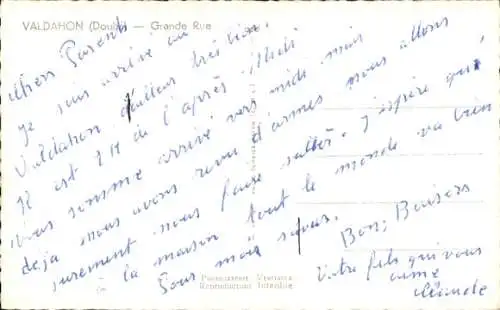 VALDAHON (Doubs) — Grande Rue
Chers Parents
Je suis arrivé au
Valdahon d'ailleur très bien.
Il est 1 H de l'après-Midi
nous somme arrivé vers midi mais
deja nous avons revu d'armes nous allons
surement nous faire sauter. J'espère qui
à la maison tout le monde va bien
Pour moi
Bons Baisers
Votre fils qui vous
aime
Claude
Reproduction Interdite